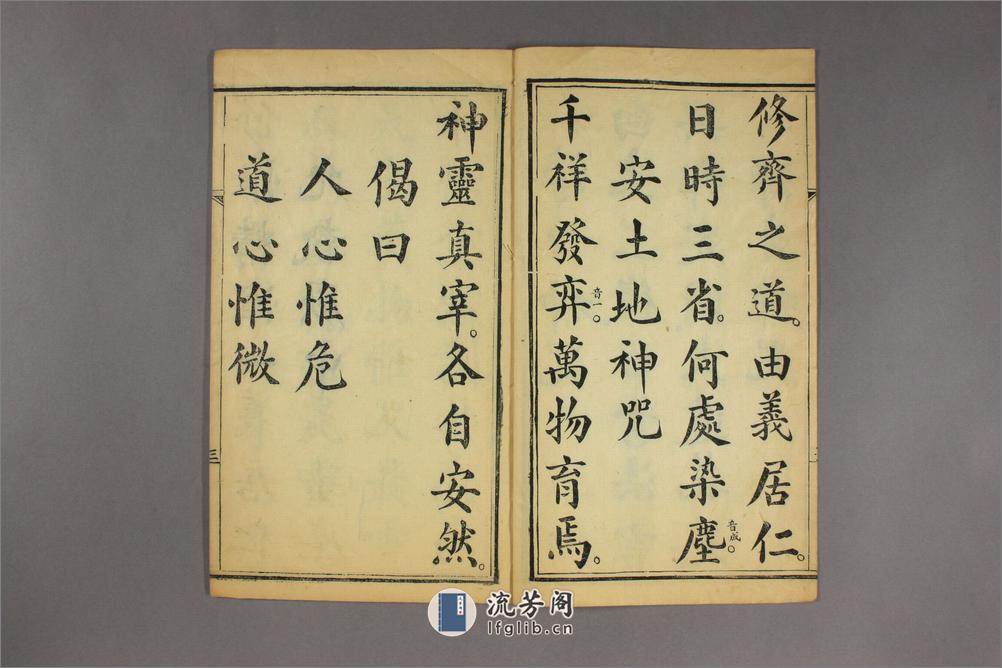 修齊之道。由義居仁。
日時三省。何處染塵音成。
安土地神咒
千祥發弈音一。萬物育焉。
神靈真宰。各自安然。
偈曰
人心惟危
道心惟微
三
流芳阁
lfglib.cn